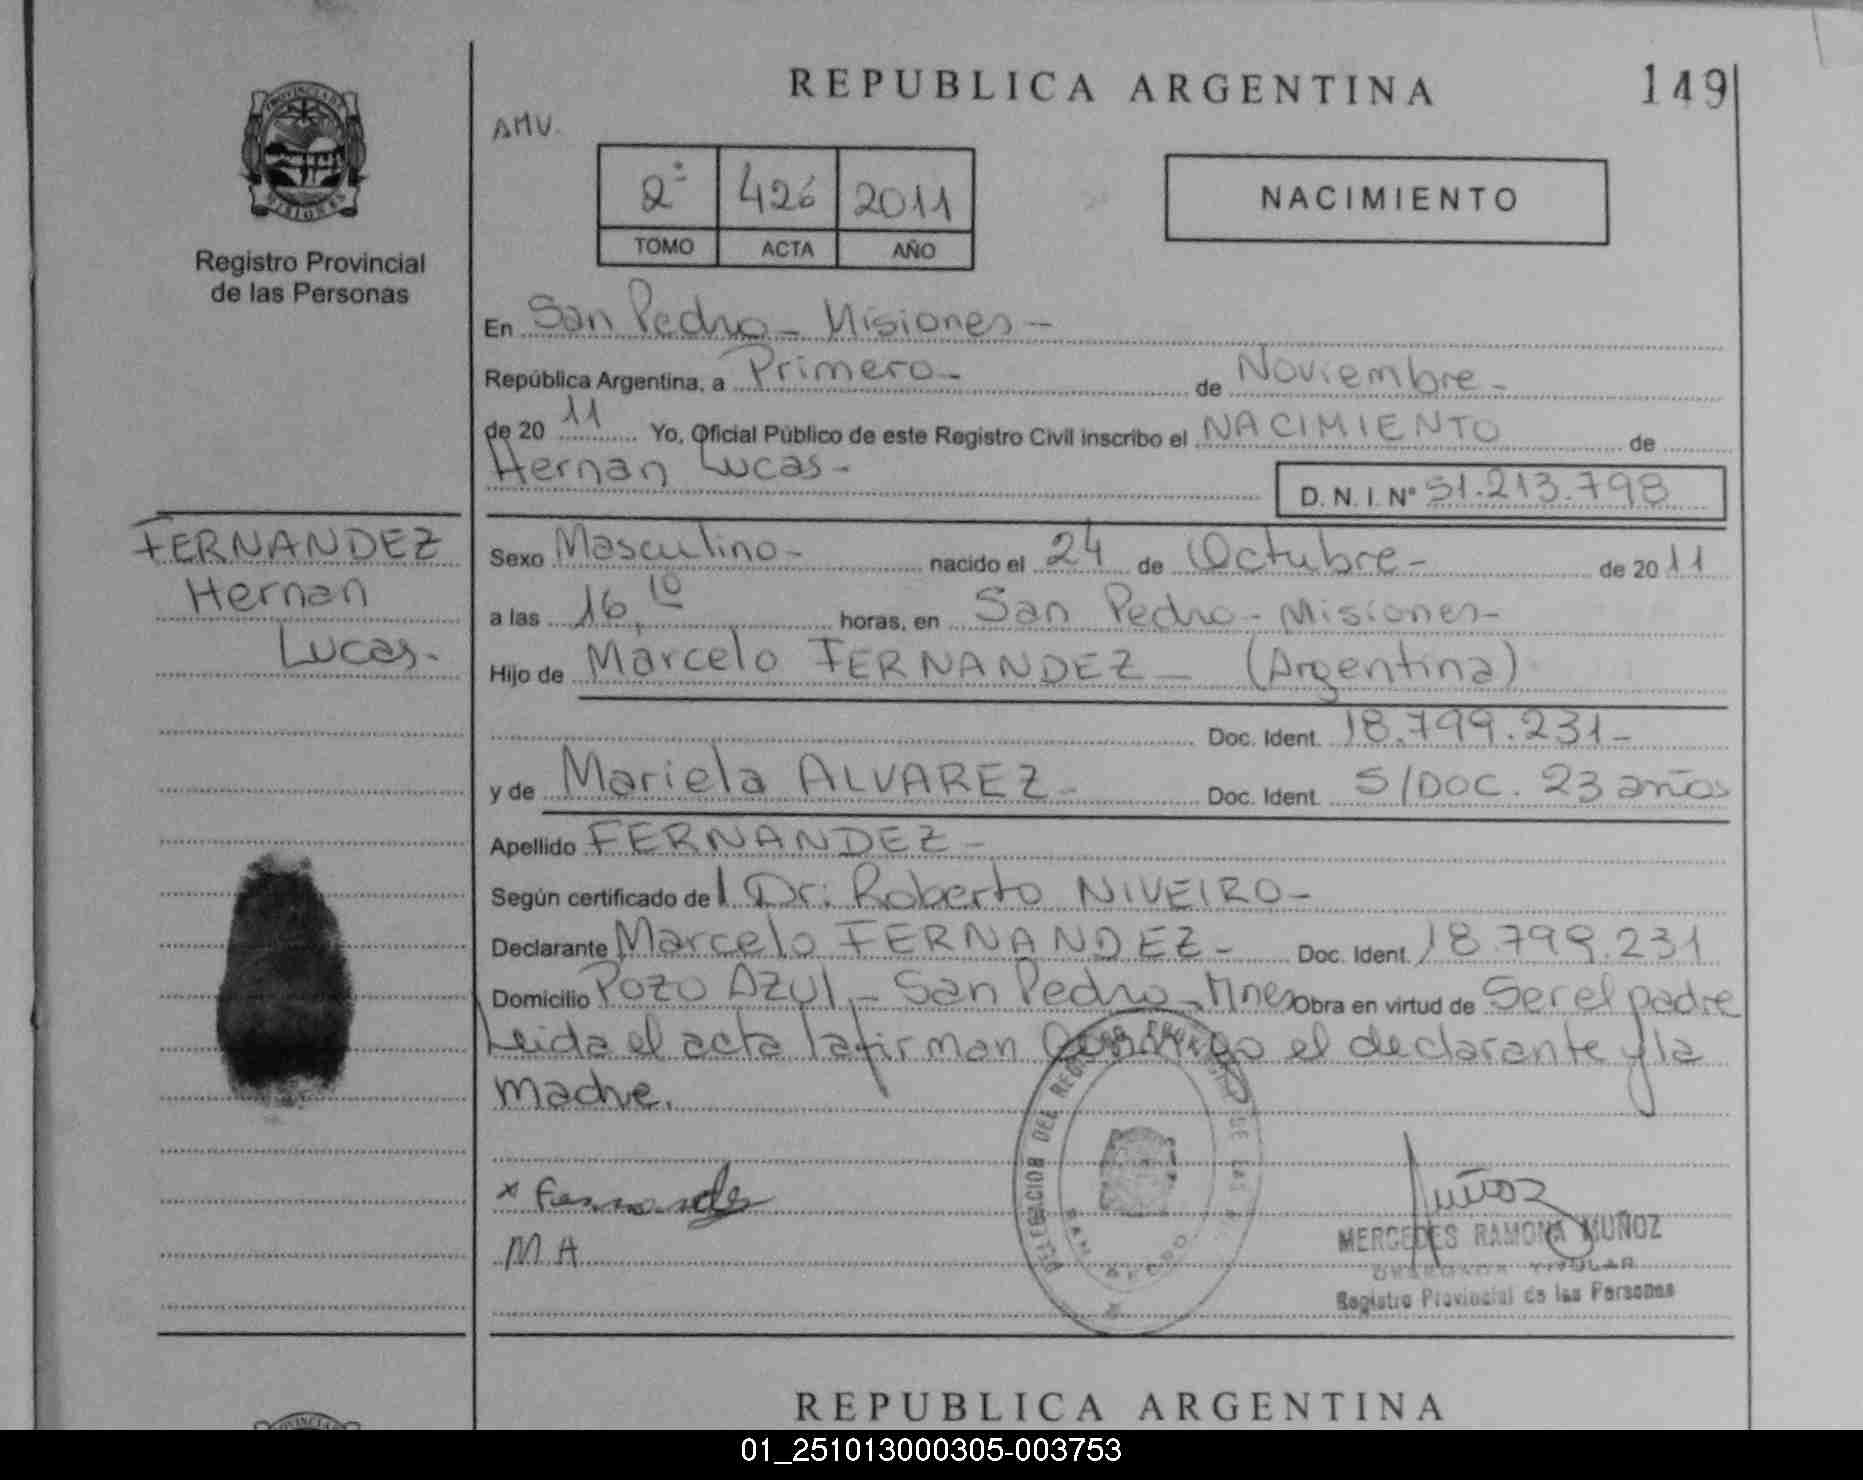 REPUBLICA ARGENTINA
149
AMV.
PROVINCIA DE MISIONES
Registro Provincial
de las Personas
2° 426 2011
TOMO ACTA AÑO
NACIMIENTO
En San Pedro - Misiones -
República Argentina, a Primero - de Noviembre -
de 20 11 Yo, Oficial Público de este Registro Civil inscribo el NACIMIENTO de
Hernan Lucas -
D. N. I. N° 51.213.798
FERNANDEZ
Hernan
Lucas -
Sexo Masculino - nacido el 24 de Octubre - de 2011
a las 16,10 horas, en San Pedro - Misiones -
Hijo de Marcelo FERNANDEZ - (Argentina)
Doc. Ident. 18.799.231 -
y de Mariela ALVAREZ - Doc. Ident. S/DOC. 23 años
Apellido FERNANDEZ -
Según certificado del Dr: Roberto NIVEIRO -
Declarante Marcelo FERNANDEZ - Doc. Ident. 18.799.231
Domicilio Pozo Azul - San Pedro - Mnes Obra en virtud de Ser el padre
Leida el acta la firman Conmigo el declarante y la
madre.
DELEGACION DEL REGISTRO PROVINCIAL DE LAS
SAN PEDRO
x Fernandez
M A
Muñoz
MERCEDES RAMONA MUÑOZ
DELEGADA TITULAR
Registro Provincial de las Personas
REPUBLICA ARGENTINA
01_251013000305-003753